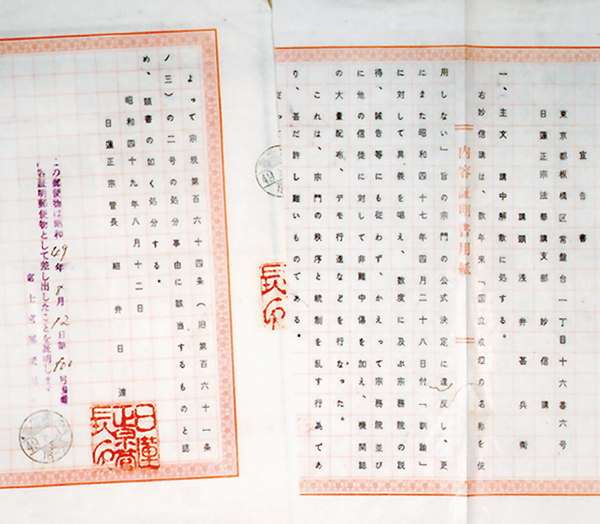 宣告書
東京都板橋区常盤台一丁目十六番六号
日蓮正宗法華講支部 妙信講
講頭 浅井甚兵衛
一、主文 講中解散に処する。
右妙信講は、数年来「国立戒壇の名称を使
用しない」旨の宗門の公式決定に違反し、更
にまた昭和四十七年四月二十八日付「訓諭」
に対して異義を唱え、数度に及ぶ宗務院の説
得、誡告等にも従わず、かえって宗務院並び
に他の信徒に対して非難中傷を加え、機関誌
の大量配布、デモ行進などを行なった。
これは、宗門の秩序と統制を乱す行為であ
り、甚だ許し難いものである。
従って
内容証明書用紙
よって宗規第百六十四条(旧第百六十一条
ノ三)の二号の処分事由に該当するものと認
め、頭書の如く処分する。
昭和四十九年八月十二日
日蓮正宗管長 細井日達
この郵便物は昭和49年8月12日第500号書留
内容証明郵便物として差し出したことを証明します
富士宮郵便
日蓮正宗管長印
長印